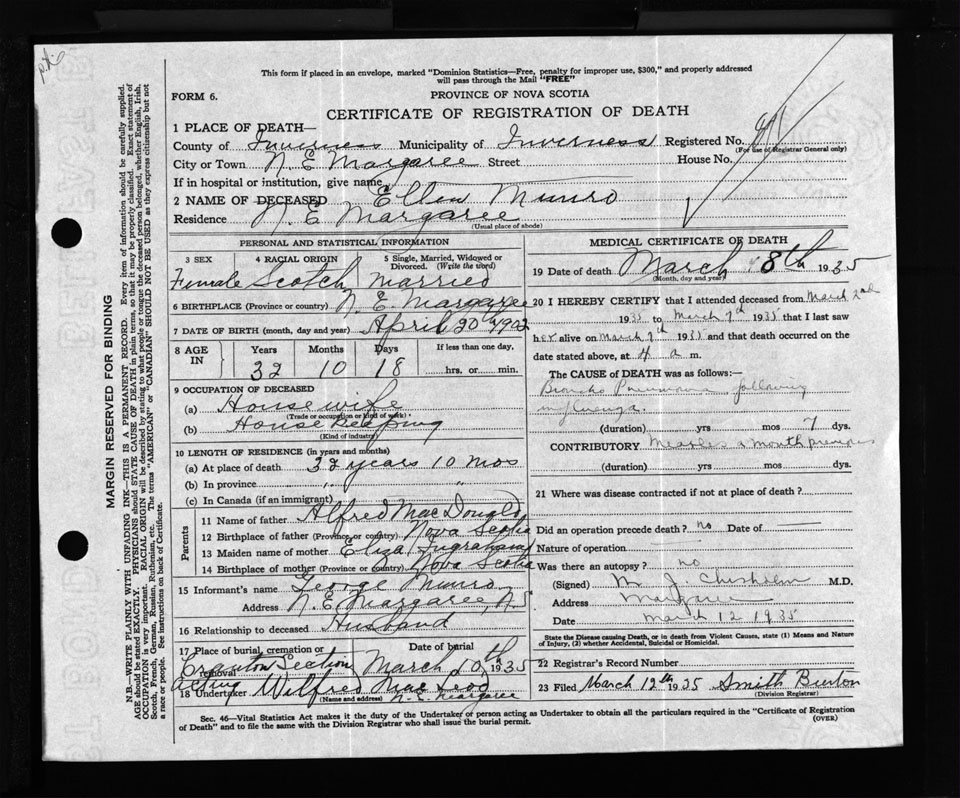 This form if placed in an envelope, marked "Dominion Statistics—Free, penalty for improper use, $300," and properly addressed
will pass through the Mail "FREE"
FORM 6.
PROVINCE OF NOVA SCOTIA
CERTIFICATE OF REGISTRATION OF DEATH
1 PLACE OF DEATH—
County of Inverness Municipality of Inverness Registered No.
(For use of Registrar General only)
City or Town N. E. Margaree Street House No.
If in hospital or institution, give name
2 NAME OF DECEASED Ellen Munro
Residence N. E. Margaree
(Usual place of abode)
PERSONAL AND STATISTICAL INFORMATION
3 SEX 4 RACIAL ORIGIN 5 Single, Married, Widowed or Divorced. (Write the word)
Female Scotch Married
6 BIRTHPLACE (Province or country) N. E. Margaree
7 DATE OF BIRTH (month, day and year) April 20th 1902
8 AGE IN Years Months Days If less than one day,
32 10 18 hrs. or min.
9 OCCUPATION OF DECEASED
(a) House wife
(Trade or occupation or kind of work)
(b) House Keeping
(Kind of industry)
10 LENGTH OF RESIDENCE (in years and months)
(a) At place of death 32 years 10 mos
(b) In province " "
(c) In Canada (if an immigrant)
Parents
11 Name of father Alfred MacDougald
12 Birthplace of father (Province or country) Nova Scotia
13 Maiden name of mother Eliza Ingraham
14 Birthplace of mother (Province or country) Nova Scotia
15 Informant's name George Munro
Address N. E. Margaree, N S
16 Relationship to deceased Husband
17 Place of burial, cremation or removal Date of burial
Cranton Section March 10th 1935
Acting
18 Undertaker Wilfred MacLeod
(Name and address) N. E. Margaree
MEDICAL CERTIFICATE OF DEATH
19 Date of death March 8th 1935
(Month, day and year)
20 I HEREBY CERTIFY that I attended deceased from March 2nd
1935 to March 7th 1935 that I last saw
her alive on March 7th 1935 and that death occurred on the
date stated above, at 4 a m.
The CAUSE of DEATH was as follows:
Broncho Pneumonia following
influenza.
(duration) yrs mos 7 dys.
CONTRIBUTORY Measles a month previous
(duration) yrs mos dys.
21 Where was disease contracted if not at place of death?
Did an operation precede death? no Date of
Nature of operation
Was there an autopsy? no
(Signed) M. J. Chisholm M.D.
Address Margaree
Date March 12 1935
State the Disease causing Death, or in death from Violent Causes, state (1) Means and Nature
of Injury, (2) whether Accidental, Suicidal or Homicidal.
22 Registrar's Record Number
23 Filed March 12th 1935 Smith Burton
(Division Registrar)
Sec. 46—Vital Statistics Act makes it the duty of the Undertaker or person acting as Undertaker to obtain all the particulars required in the "Certificate of Registration
of Death" and to file the same with the Division Registrar who shall issue the burial permit.
(OVER)
MARGIN RESERVED FOR BINDING
N.B.—WRITE PLAINLY WITH UNFADING INK—THIS IS A PERMANENT RECORD. Every item of information should be carefully supplied.
AGE should be stated EXACTLY. PHYSICIANS should STATE CAUSE OF DEATH in plain terms, so that it may be properly classified. Exact statement of
OCCUPATION is very important. RACIAL ORIGIN will be described by stating to what people or tongue the deceased person belonged, whether English, Irish,
Scotch, French, German, Russian, Ruthenian, etc. The terms "AMERICAN" or "CANADIAN" SHOULD NOT BE USED as they express citizenship but not
a race or people. See instructions on back of Certificate.